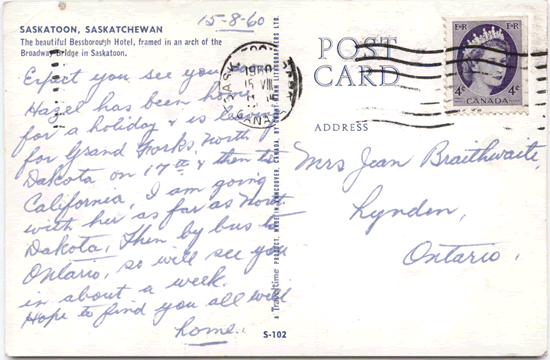 15-8-60
SASKATOON, SASKATCHEWAN
The beautiful Bessborough Hotel, framed in an arch of the
Broadway Bridge in Saskatoon.
Expect you see you soon
Hazel has been home
for a holiday & is leaving
for Grand Forks, North
Dakota on 17th & then to
California, I am going
with her as far as North
Dakota, Then by bus to
Ontario, so will see you
in about a week.
Hope to find you all well
home.
S-102
POST
CARD
ADDRESS
Mrs Jean Braithwaite,
Lynden,
Ontario.
E R E R
4¢ 4¢
CANADA
SASK
1960
15 VIII
CANADA